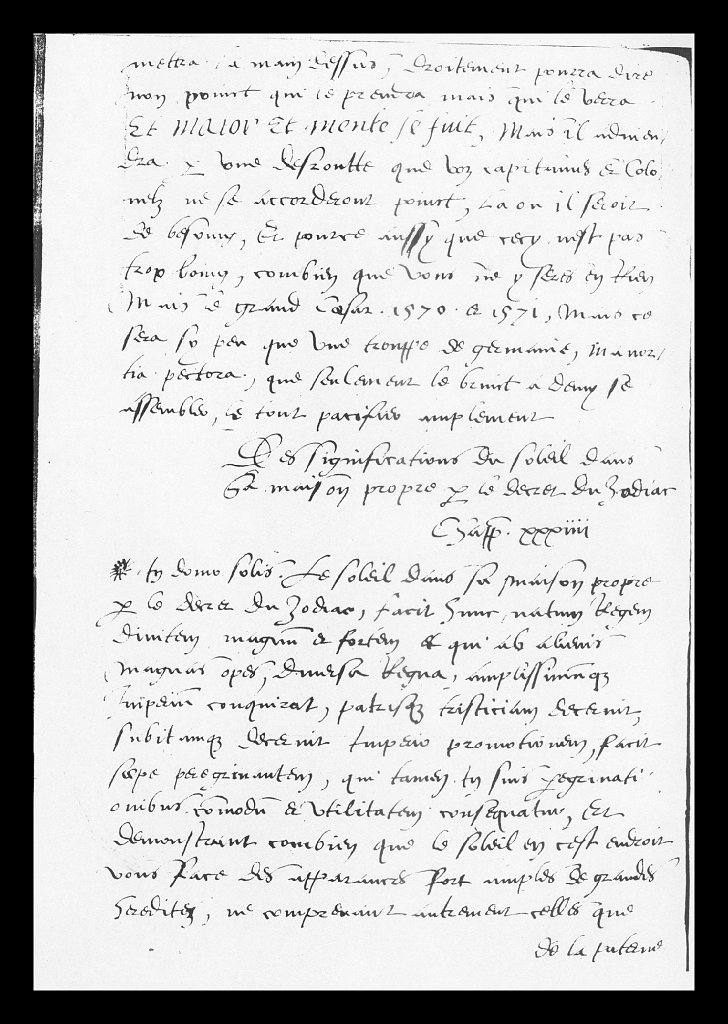 mettra la main dessus, droitement pourra dire
non point qui le prendra mais qui le verra
Et maior Et monte se fuit, Mais il advien
dra p une desroutte que voz capitaines Et Colo
nelz ne se accorderont point, La ou il seroit
de besoing, Et pource aussy que cecy nest pas
trop loing, combien que vous ne y seres en Rien
Mais le grand Cæsar 1570 et 1571, Mais ce
sera sy peu que une trouppe de germanie, Mavor
tia pectora, que seulement le bruict a demy se
assembler, le tout pacifier amplement
Des significations du soleil dans
Sa maison propre p le decret du Zodiac
Chapp. xxxiiii
In domo solis. Le soleil dans sa maison propre
p le decret du Zodiac, facit hunc natum Regem
divitem magnum et fortem et qui ab alienis
magnas opes, diversa Regna, amplissimumq
Imperium conquirat, patrisq tristiciam decernit,
subitamq decernit Imperio promotionem, facit
sæpe peregrinantem, qui tamen In suis peregrinati
onibus comodum et utilitatem consequatur, Et
demonstrant combien que le soleil en cest endroit
vous face des apparances fort amples de grandes
hereditez, ne comprenant autrement celles que
de la paterne